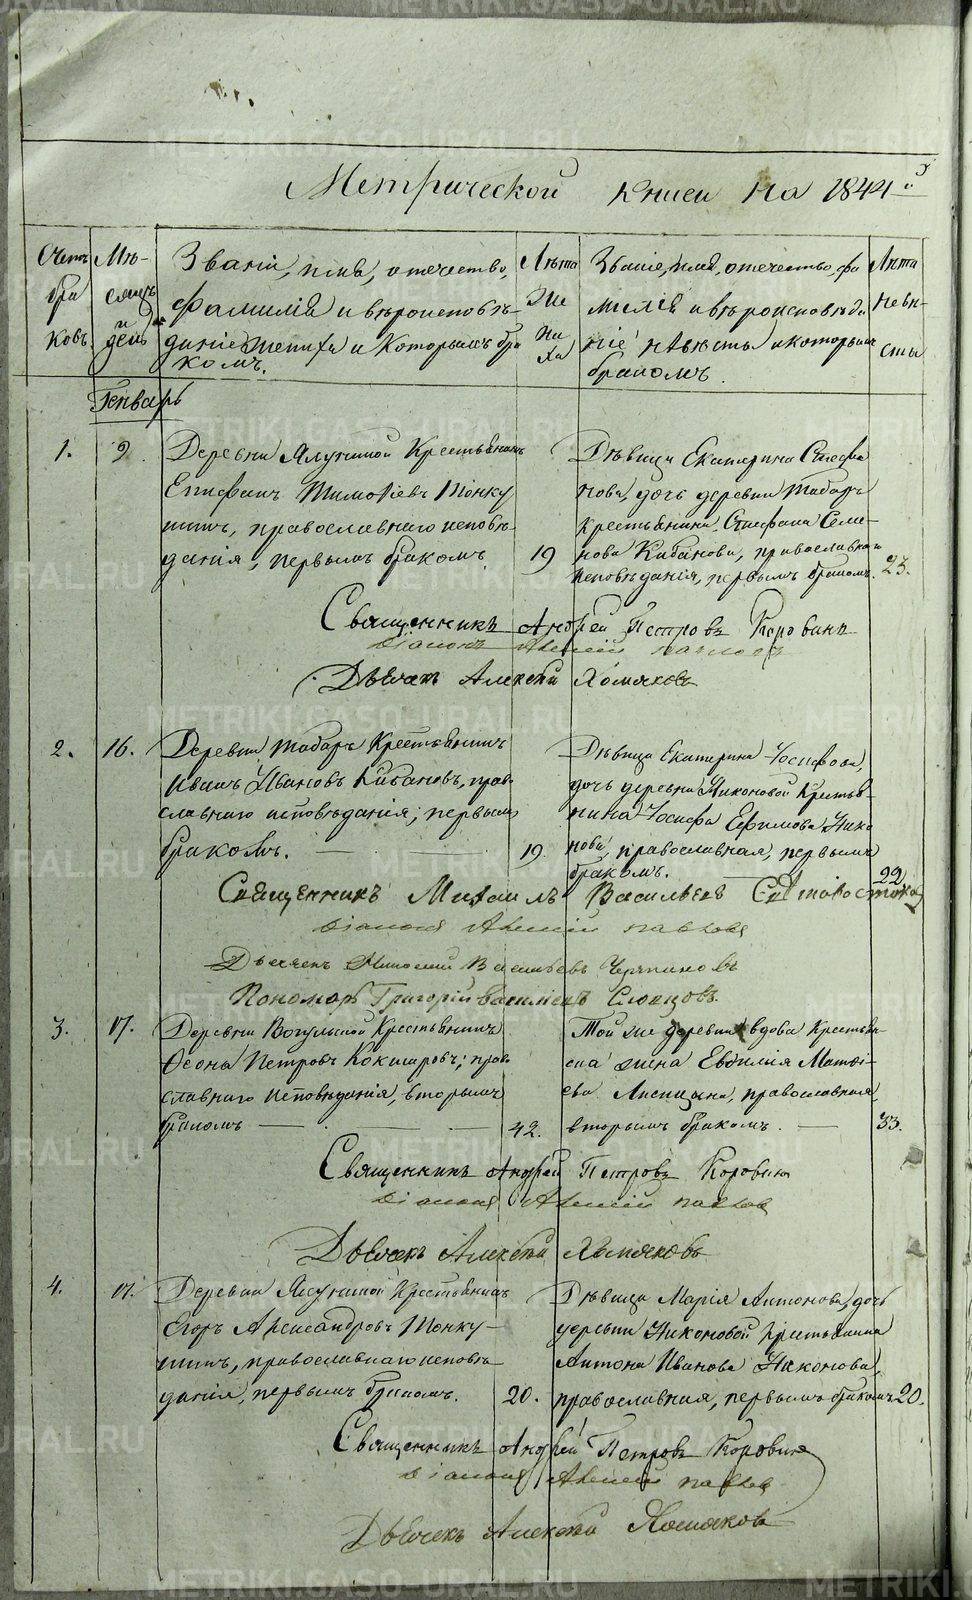 METRIKI.GASO-URAL.RU
Метрической книги на 1844й
Счетъ браковъ
Мѣсяцъ и день
Званіи, имя, отечество, фамилія и вѣроисповѣданіе жениха и которымъ бракомъ.
Лѣта жениха
Званіе, имя, отечество, фамилія и вѣроисповѣданіе невѣсты и которымъ бракомъ.
Лѣта невѣсты
Генварь
1.
9.
Деревни Ялуниной Крестьянинъ
Епифанъ Тимофіевъ Тонку
шинъ, православнаго исповѣ-
данія, первымъ бракомъ.
19
Дѣвица Екатерина Стефа
нова, дочь деревни Табаръ
крестьянина Стефана Семе-
нова Кабанова, православнаго
исповѣданія, первымъ бракомъ.
23.
Священникъ Андрей Петровъ Коровинъ
Діаконъ павловъ
Дьячекъ Алексѣй Хомяковъ
2.
16.
Деревни Табаръ Крестьянинъ
Иванъ Ивановъ Кабановъ, право
славнаго исповѣданія, первымъ
бракомъ.
19
Дѣвица Екатерина Іосифова,
дочь деревни Никоновой Крестья-
нина Іосифа Ефимова Нико
нова, православная, первымъ
бракомъ.
22
Священникъ Михаилъ Васильевъ
Діаконъ павловъ
Дьячекъ Николай Васильевъ
Пономарь Григорій Васильевъ Словцовъ.
3.
17.
Деревни Вогульской Крестьянинъ
Петровъ Кокшаровъ, право
славнаго исповѣданія, вторымъ
бракомъ
42.
Той же деревни вдова Крестьян
ская жина Евдокія Матѳі-
ева Лисицына, православная,
вторымъ бракомъ.
33.
Священникъ Андрей Петровъ Коровинъ
Діаконъ павловъ
Дьячекъ Алексѣй Хомяковъ
4.
17.
Деревни Ялуниной Крестьянинъ
Егоръ Александровъ Тонку-
шинъ, православнаго исповѣ
данія, первымъ бракомъ.
20.
Дѣвица Марія Антонова, дочь
деревни Никоновой крестьянина
Антона Иванова Никонова,
православная, первымъ бракомъ
20.
Священникъ Андрей Петровъ Коровинъ
Діаконъ павловъ
Дьячекъ Алексѣй Хомяковъ